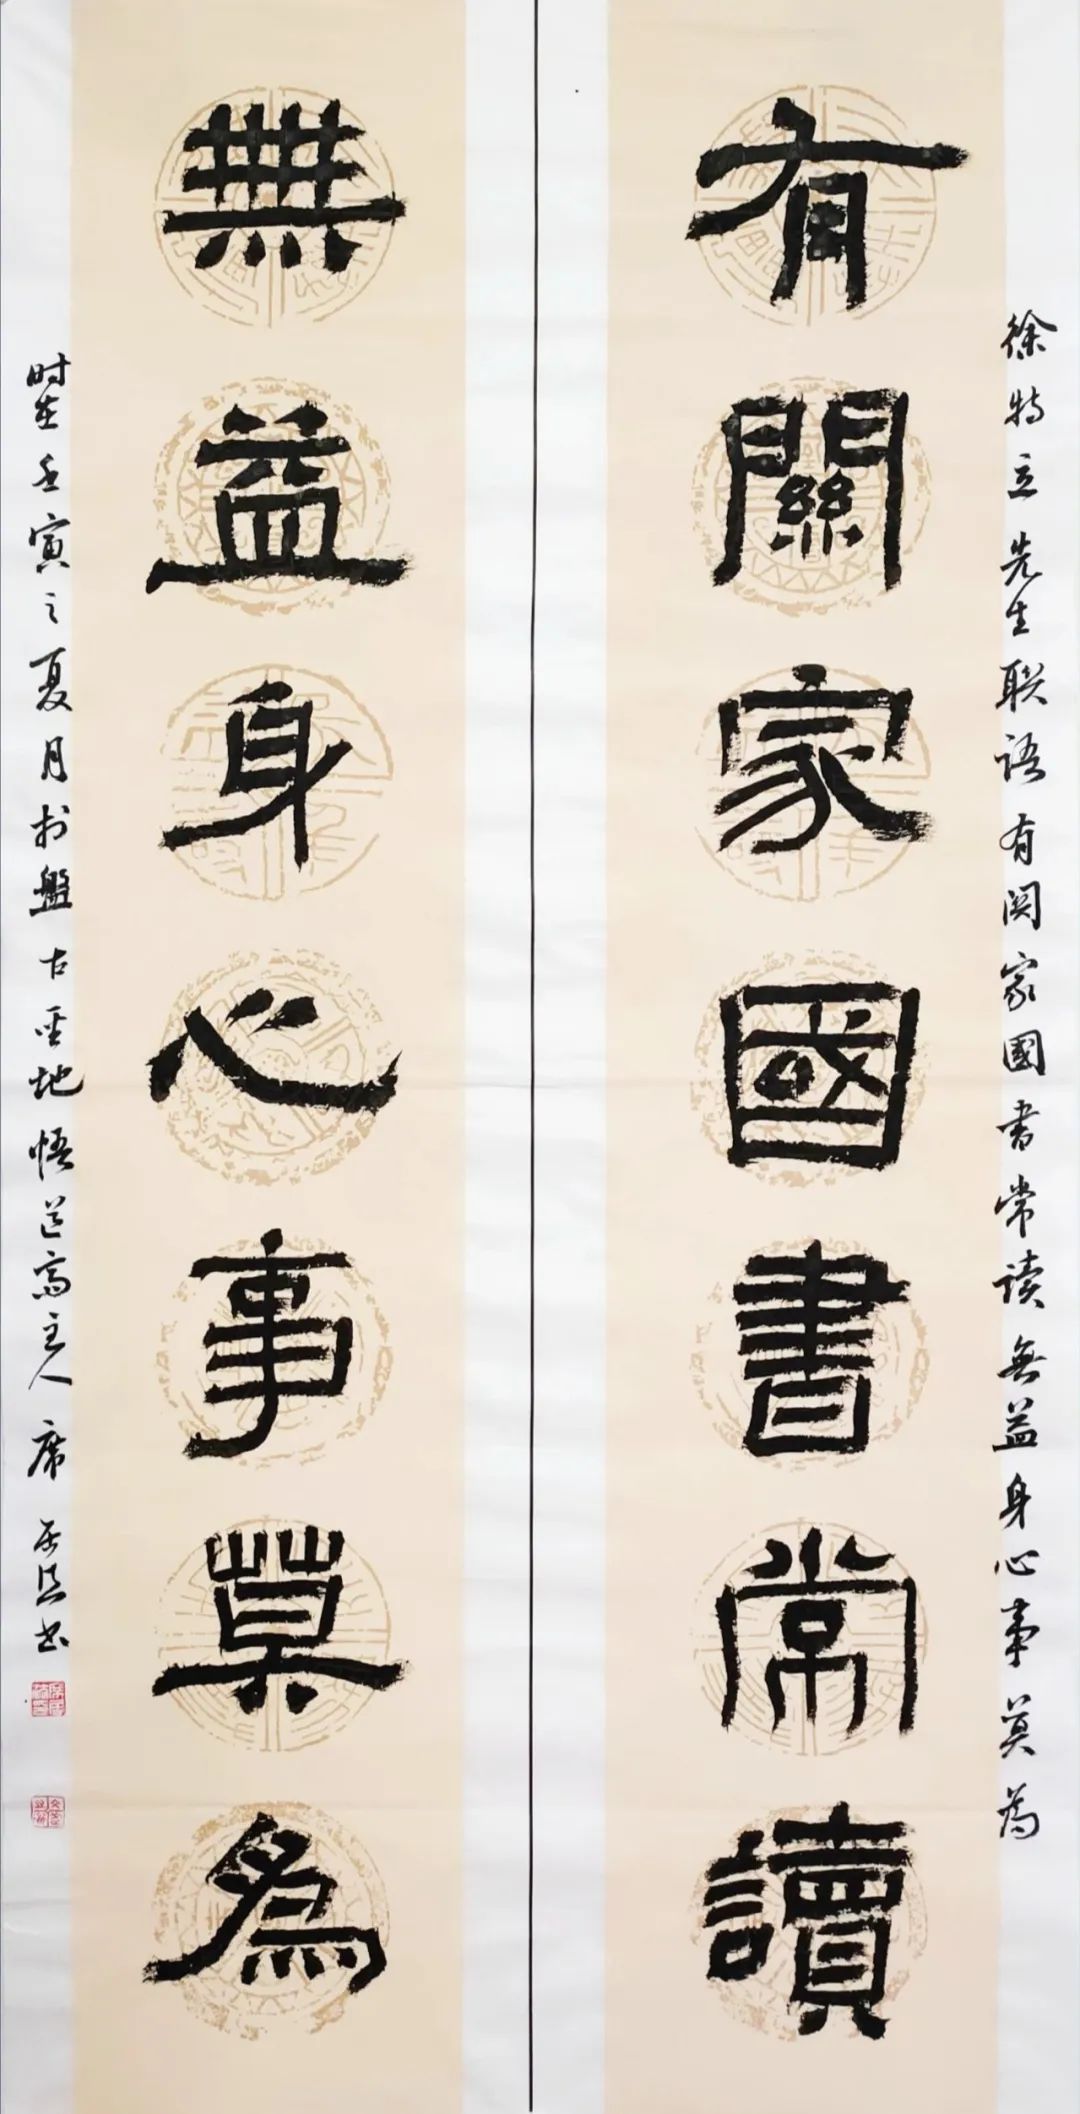 徐特立先生联语有関家國书常读無益身心事莫为
有關家國書常讀
無益身心事莫爲
时在壬寅之夏月于盤古聖地悟道斋主人席
书